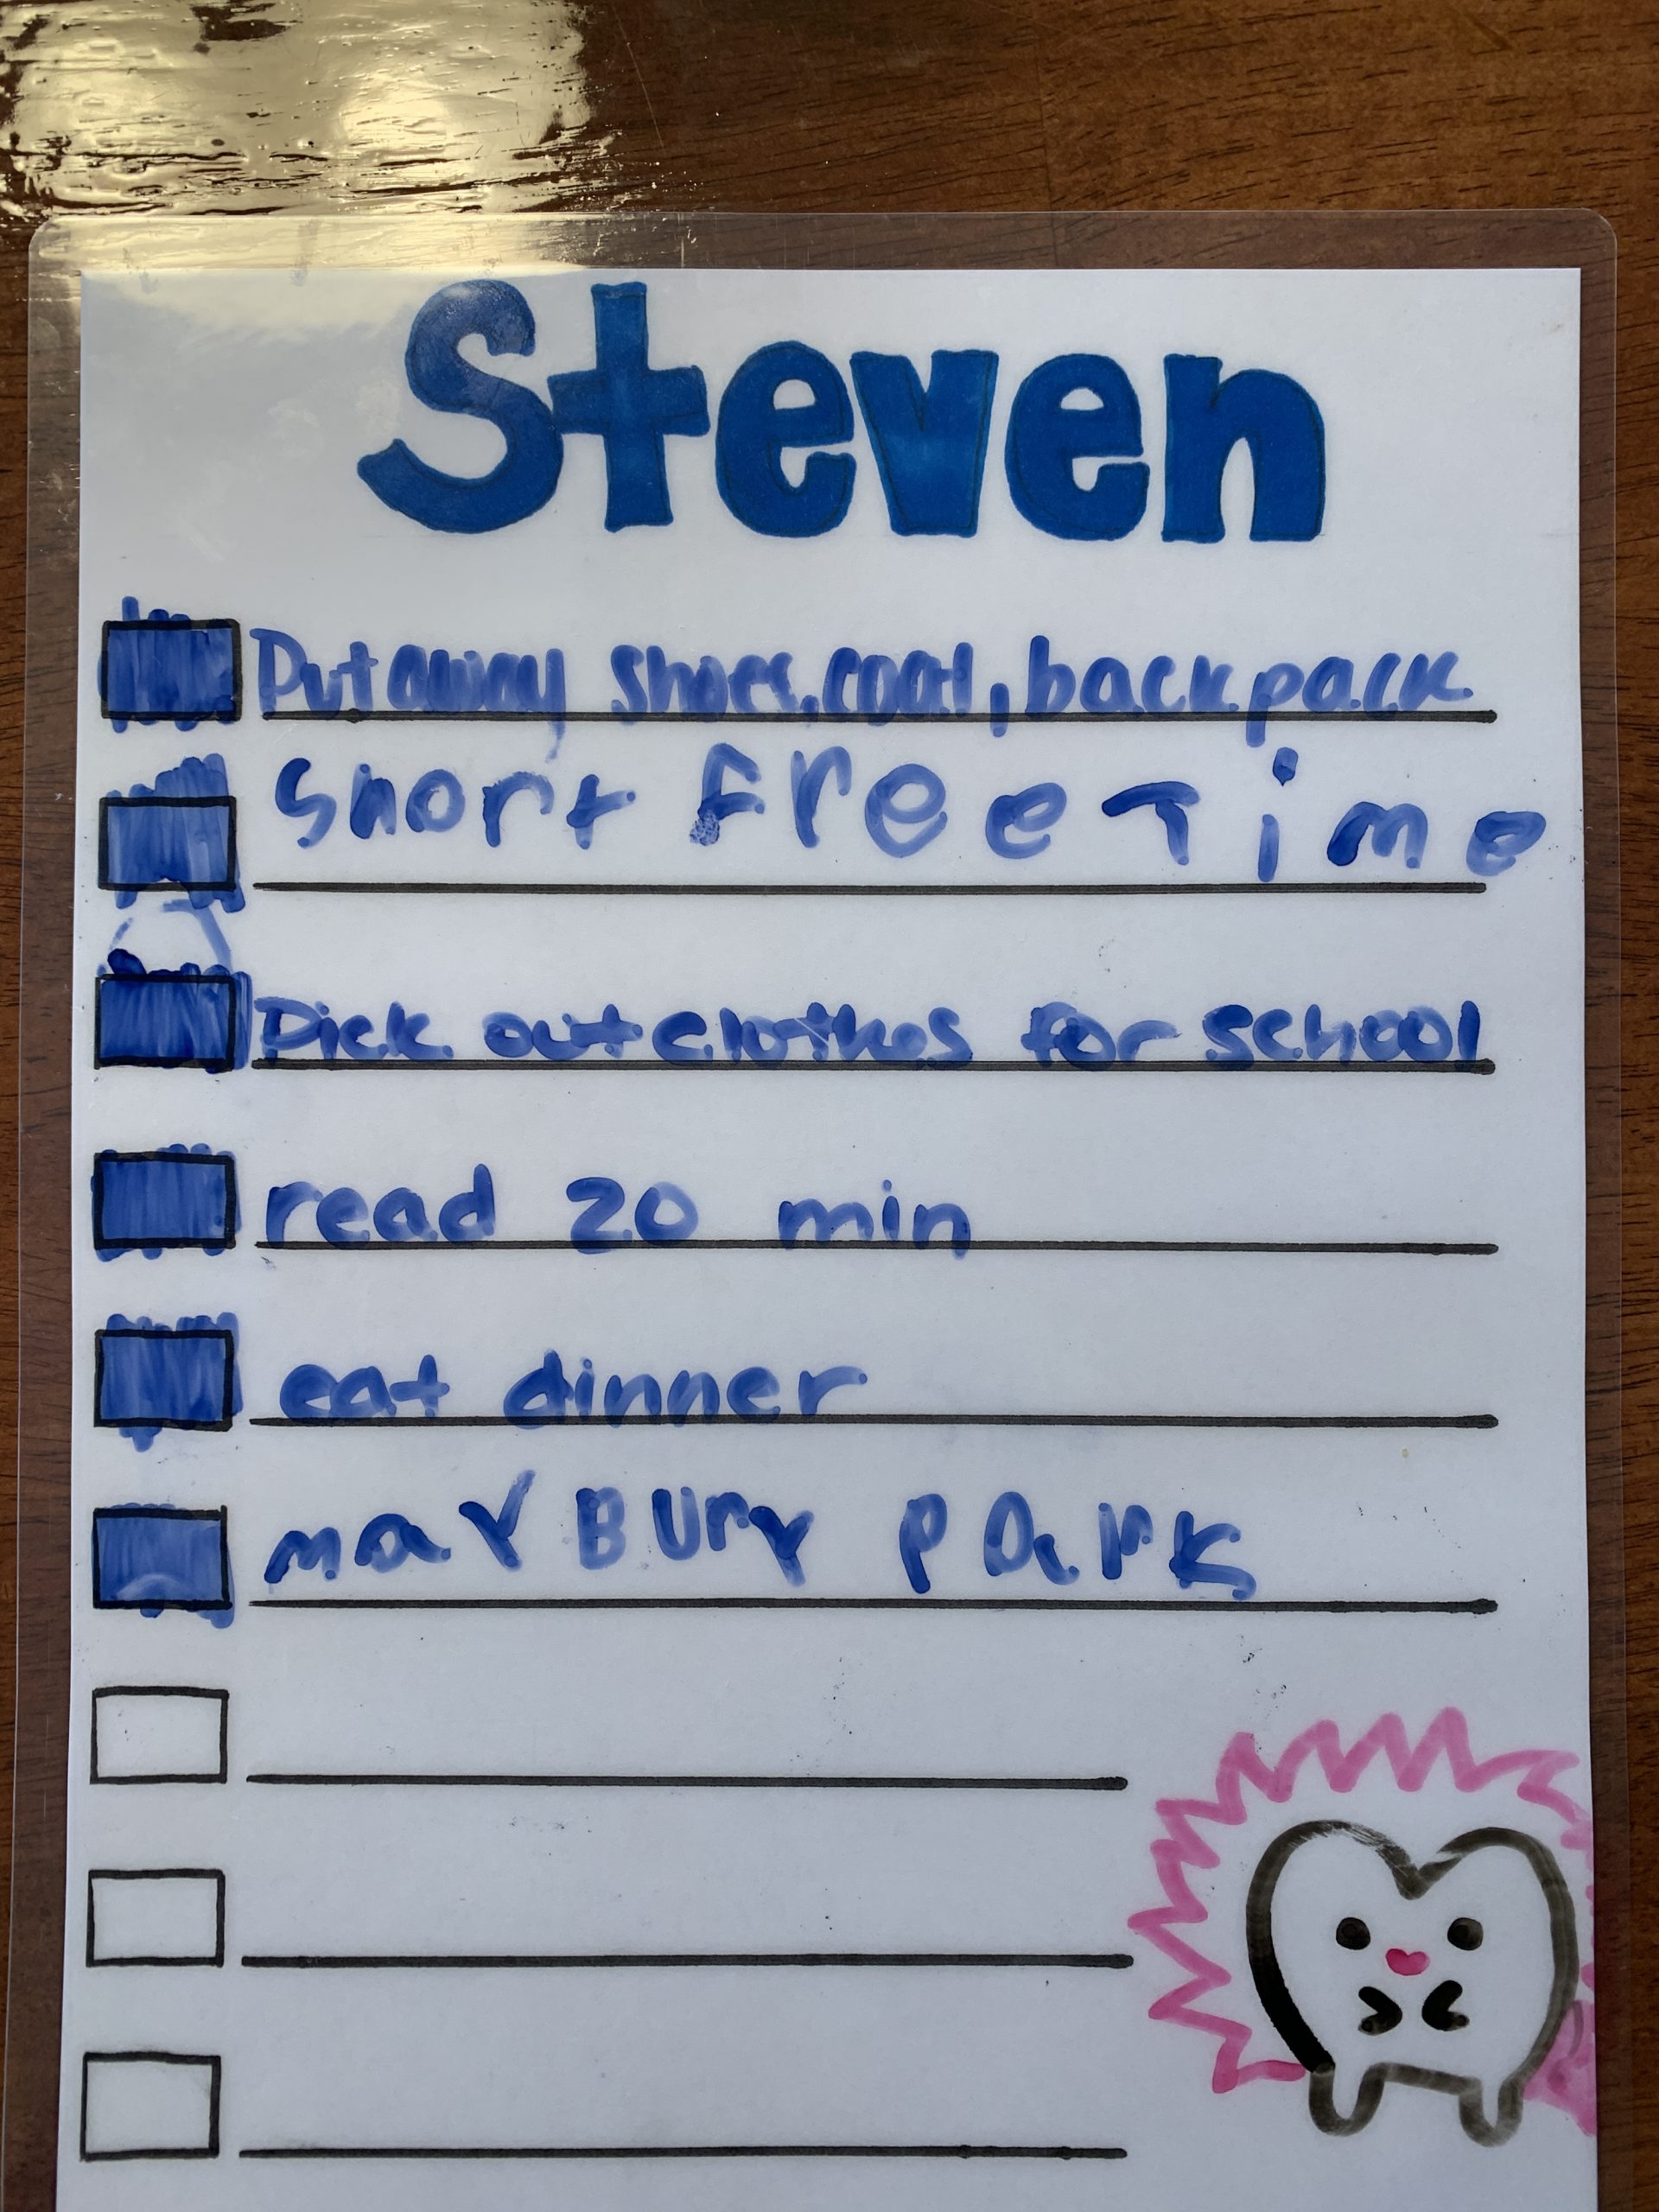 Steven
Put away shoes, coat, backpack
Short Free Time
Pick out clothes for school
read 20 min
eat dinner
mayBUry PArk